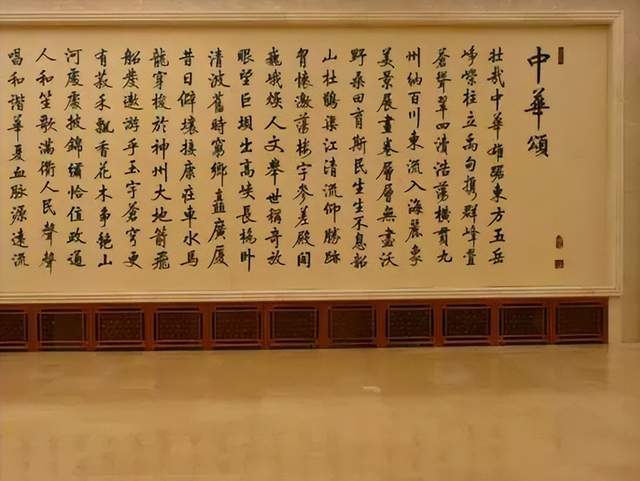 中華頌
壯哉中華雄踞東方五岳
崢嶸柱立禹甸携群峰疊
蒼聳翠四瀆浩蕩橫貫九
州納百川東流入海麗象
美景展畫卷層層無盡沃
野桑田育斯民生生不息韶
山杜鵑渠江清流仰勝跡
胷懷激蕩樓宇參差殿閣
巍峨煥人文舉世稱奇放
眼望巨壩出高峽長橋卧
清波舊時窮鄉矗廣廈
昔日僻壤接康莊車水馬
龍穿梭於神州大地箭飛
船發遨游乎玉宇蒼穹更
有菽禾飄香花木爭艳山
河處處披錦繡恰值政通
人和笙歌滿衢人民聲聲
唱和諧華夏血脉源遠流